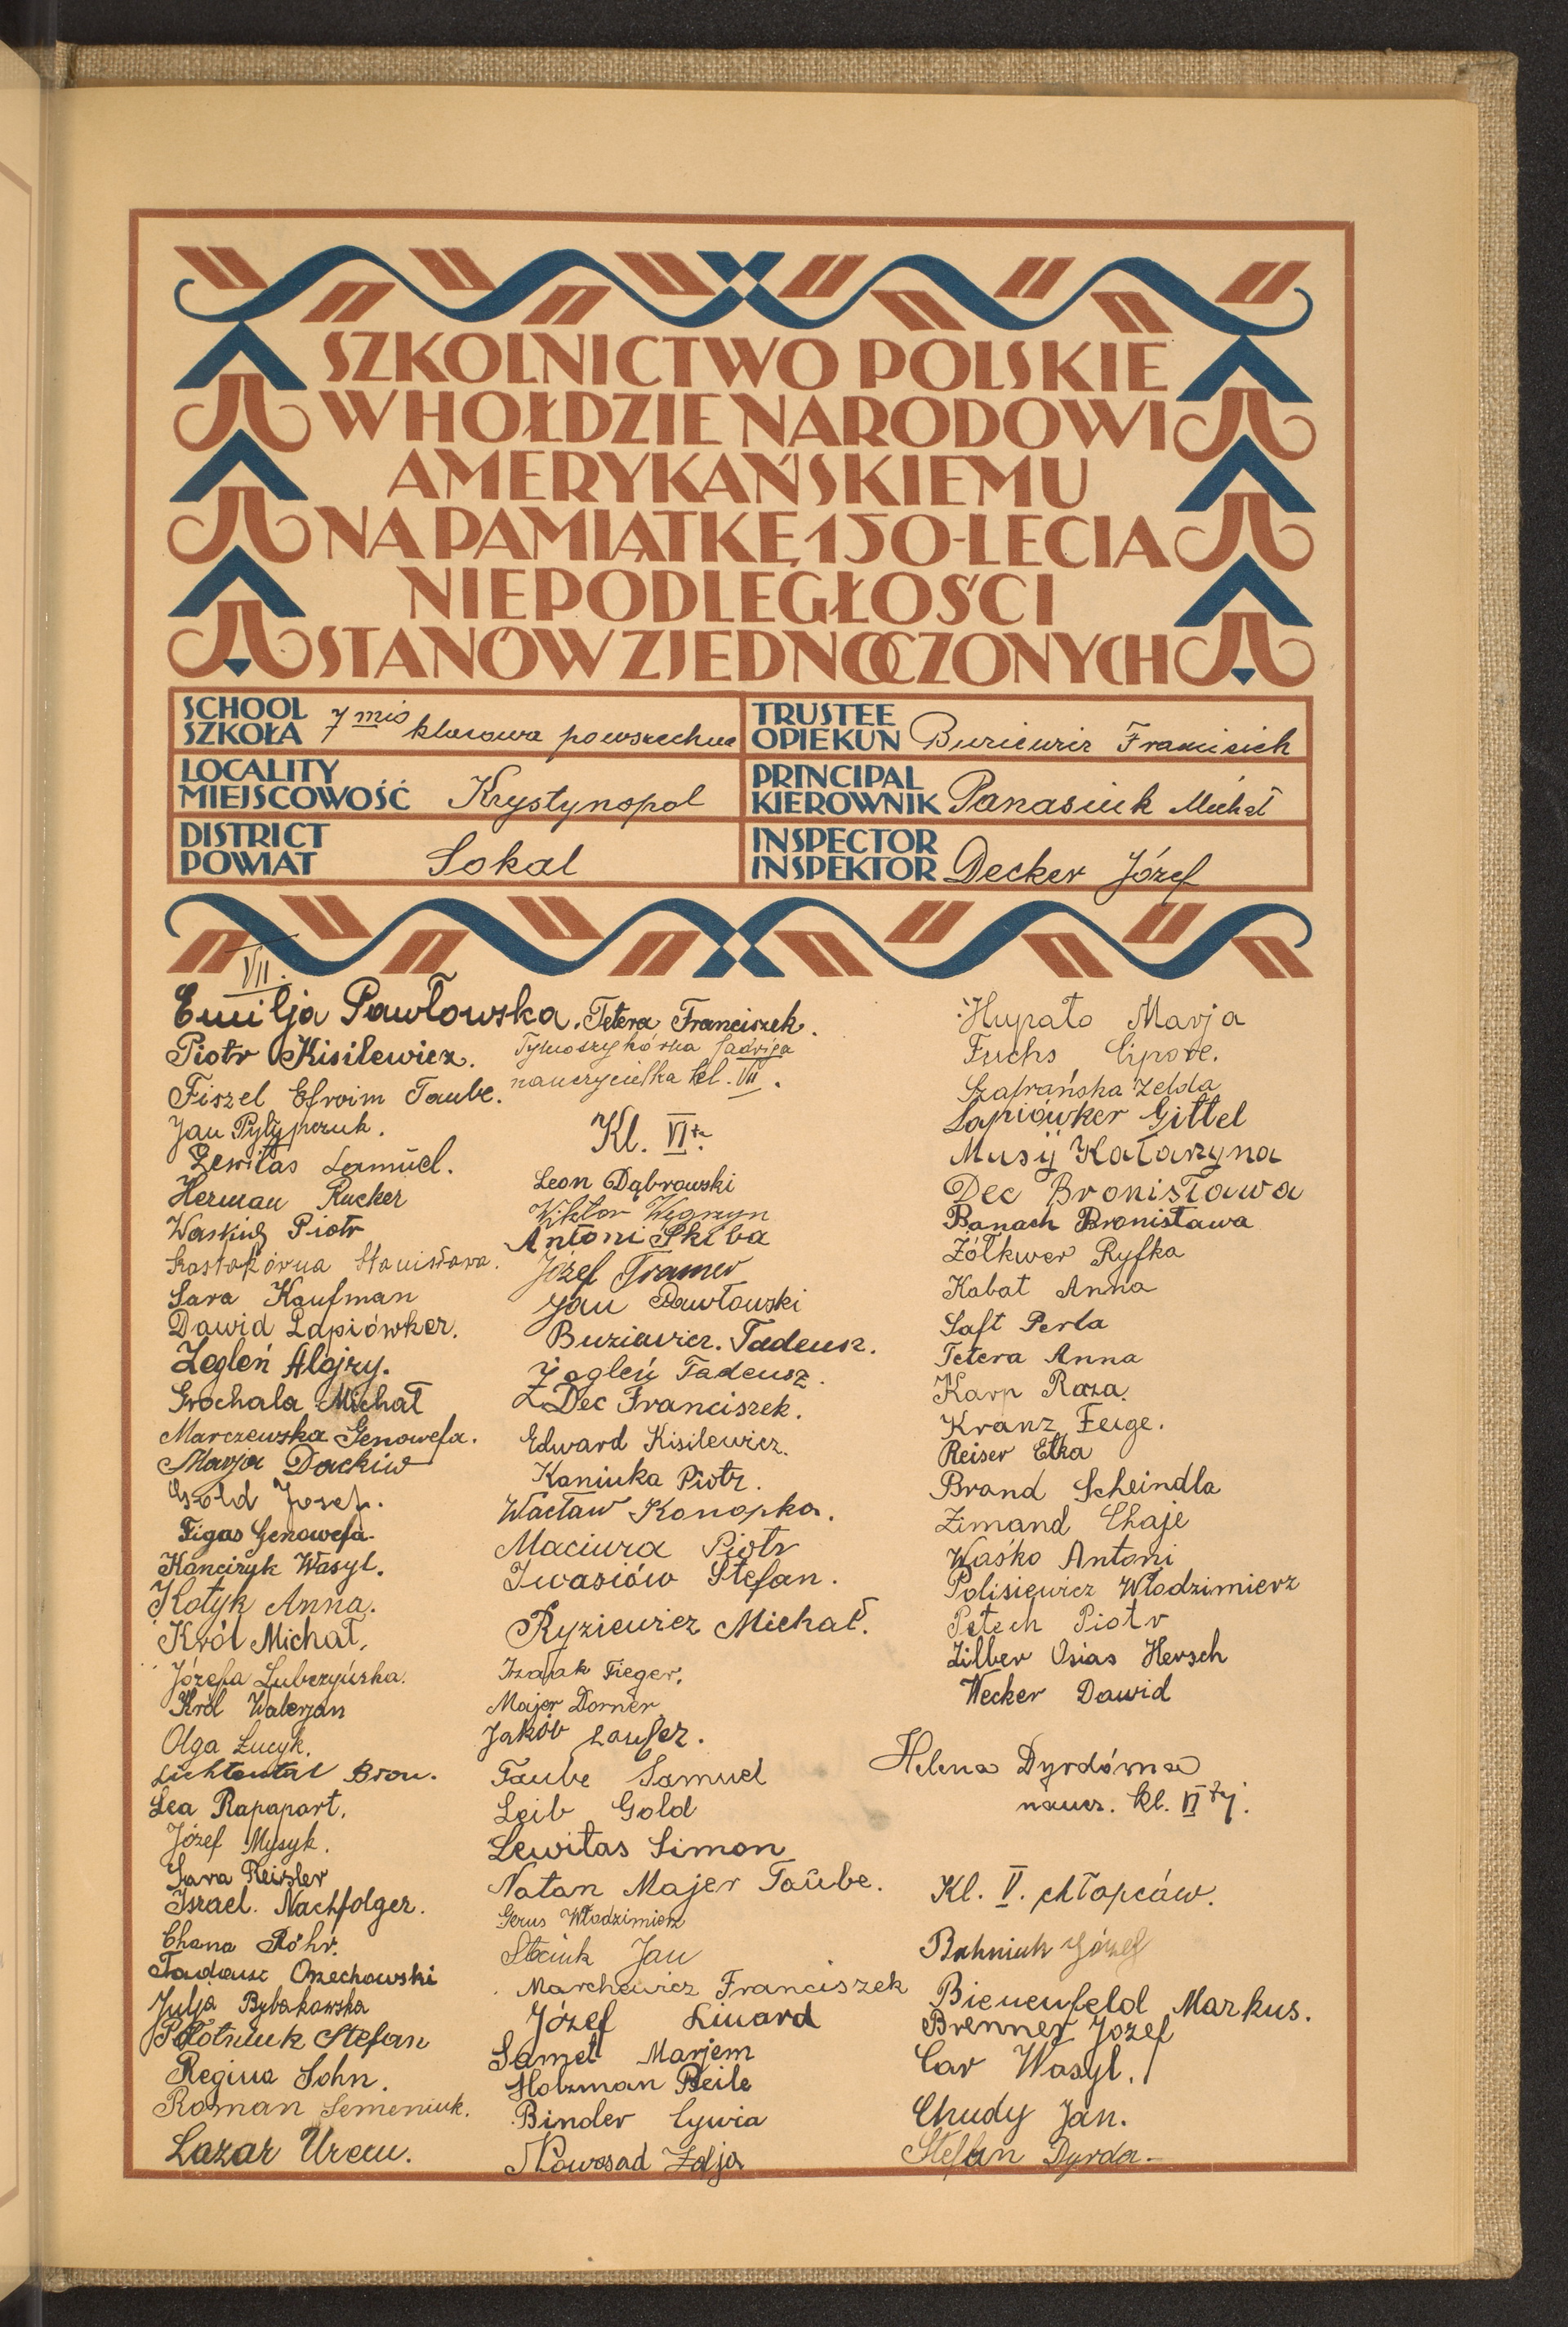 SZKOLNICTWO POLSKIE
W HOŁDZIE NARODOWI
AMERYKAŃSKIEMU
NA PAMIĄTKĘ 150-LECIA
NIEPODLEGŁOŚCI
STANÓW ZJEDNOCZONYCH
SCHOOL
SZKOŁA 7 mio klasowa powszechna
TRUSTEE
OPIEKUN
LOCALITY
MIEJSCOWOŚĆ Krystynopol
PRINCIPAL
KIEROWNIK Panasiuk Michał
DISTRICT
POWIAT Sokal
INSPECTOR
INSPEKTOR Decker Józef
VII.
Emilja Pawłowska.
Piotr Kisilewicz.
Fiszel Efroim Taube.
Jan
Lewitas Samuel.
Herman Rucker
Waskiy Piotr
Stanisława.
Sara Kaufman
Dawid Lapiówker.
Żegleń Alojzy.
Grochala Michał
Marczewska Genowefa.
Marja Dackiw
Gold Josef.
Figas Genowefa.
Kanciryk Wasyl.
Kotyk Anna.
Król Michał.
Józefa Lubczyńska.
Król Walerjan
Olga Łucyk.
Lichtental Bron.
Lea Rapaport.
Józef Mysyk.
Sara Reizler
Israel. Nachfolger.
Chana Röhr.
Tadeusz Orzechowski
Julja Rybakowska
Połotniuk Stefan
Regina Sohn.
Roman Semeniuk.
Lazar Uram.
Tetera Franciszek.
Jadwiga
nauczycielka kl. VII.
Kl. VI ta.
Leon Dąbrowski
Wiktor Węgrzyn
Antoni Skiba
Józef Tramer
Jan Pawłowski
Buziewicz. Tadeusz.
Żegleń Tadeusz.
Dec Franciszek.
Edward Kisilewicz.
Kaniuka Piotr.
Wacław Konopka.
Maciura Piotr
Iwasiów Stefan.
Ryziewicz Michał.
Izaak Fieger.
Majer Dorner
Jakób Laufer.
Taube Samuel
Leib Gold
Lewitas Simon
Natan Majer Taübe.
Gerus Włodzimierz
Staciuk Jan
Marchewicz Franciszek
Józef Linard
Samet Marjem
Holzman Beile
Binder Cywia
Nowosad Zofja
Hupało Marja
Fuchs Cipore.
Szafrańska Zelda
Lapiówker Gittel
Musij Katarzyna
Dec Bronisława
Banach Bronisława
Żółkwer Ryfka
Kabat Anna
Saft Perla
Tetera Anna
Karp Roza.
Kranz Feige.
Reiser Etka
Brand Scheindla
Zimand Chaje
Waśko Antoni
Polisiewicz Włodzimierz
Petech Piotr
Zilber Osias Hersch
Wecker Dawid
Helena Dyrdówna
naucz. kl. VI tej.
Kl. V. chłopców.
Józef
Bienenfeld Markus.
Brenner Jozef
Car Wasyl.
Chudy Jan.
Stefan Dyrda.